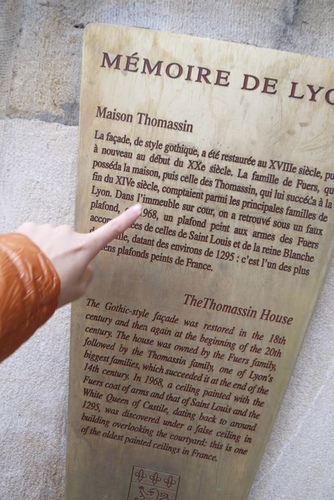 MÉMOIRE DE LYO
Maison Thomassin
La façade, de style gothique, a été restaurée au XVIIIe siècle, pu
à nouveau au début du XXe siècle. La famille de Fuers, q
posséda la maison, puis celle des Thomassin, qui lui succéda à la
fin du XIVe siècle, comptaient parmi les principales familles de
Lyon. Dans l'immeuble sur cour, on a retrouvé sous un faux
plafond, 1968, un plafond peint aux armes des Fuers
de celles de Saint Louis et de la reine Blanche
datant des environs de 1295 : c'est l'un des plus
plafonds peints de France.
TheThomassin House
The Gothic-style façade was restored in the 18th
century and then again at the beginning of the 20th
century. The house was owned by the Fuers family,
followed by the Thomassin family, one of Lyon's
biggest families, which succeeded it at the end of the
14th century. In 1968, a ceiling painted with the
Fuers coat of arms and that of Saint Louis and the
White Queen of Castile, dating back to around
1295, was discovered under a false ceiling in
building overlooking the courtyard: this is one
of the oldest painted ceilings in France.